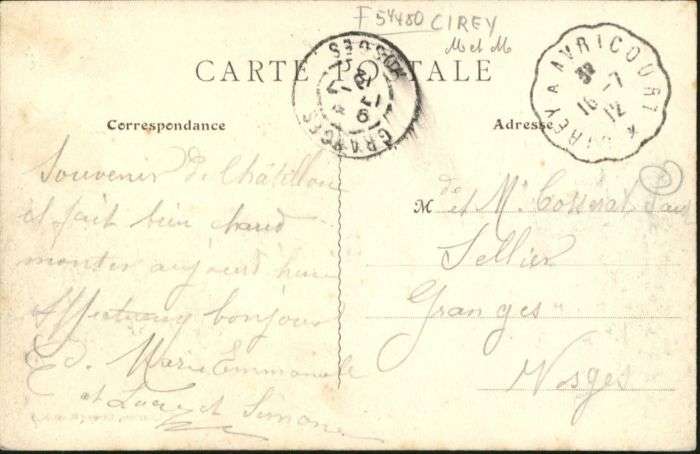 F 54480 CIREY
M et M
CARTE POSTALE
GRANGES VOSGES
CIREY A AVRICOURT *
16 -7
12
Correspondance
Adresse
Souvenir de Châtillon
il fait bien chaud
monter aujourd'hui
Affectueux bonjour
Ed. Marie Emmanuele
et Lucy et Simone
M de et Mr Cosserat
Sellier
Granges
Vosges